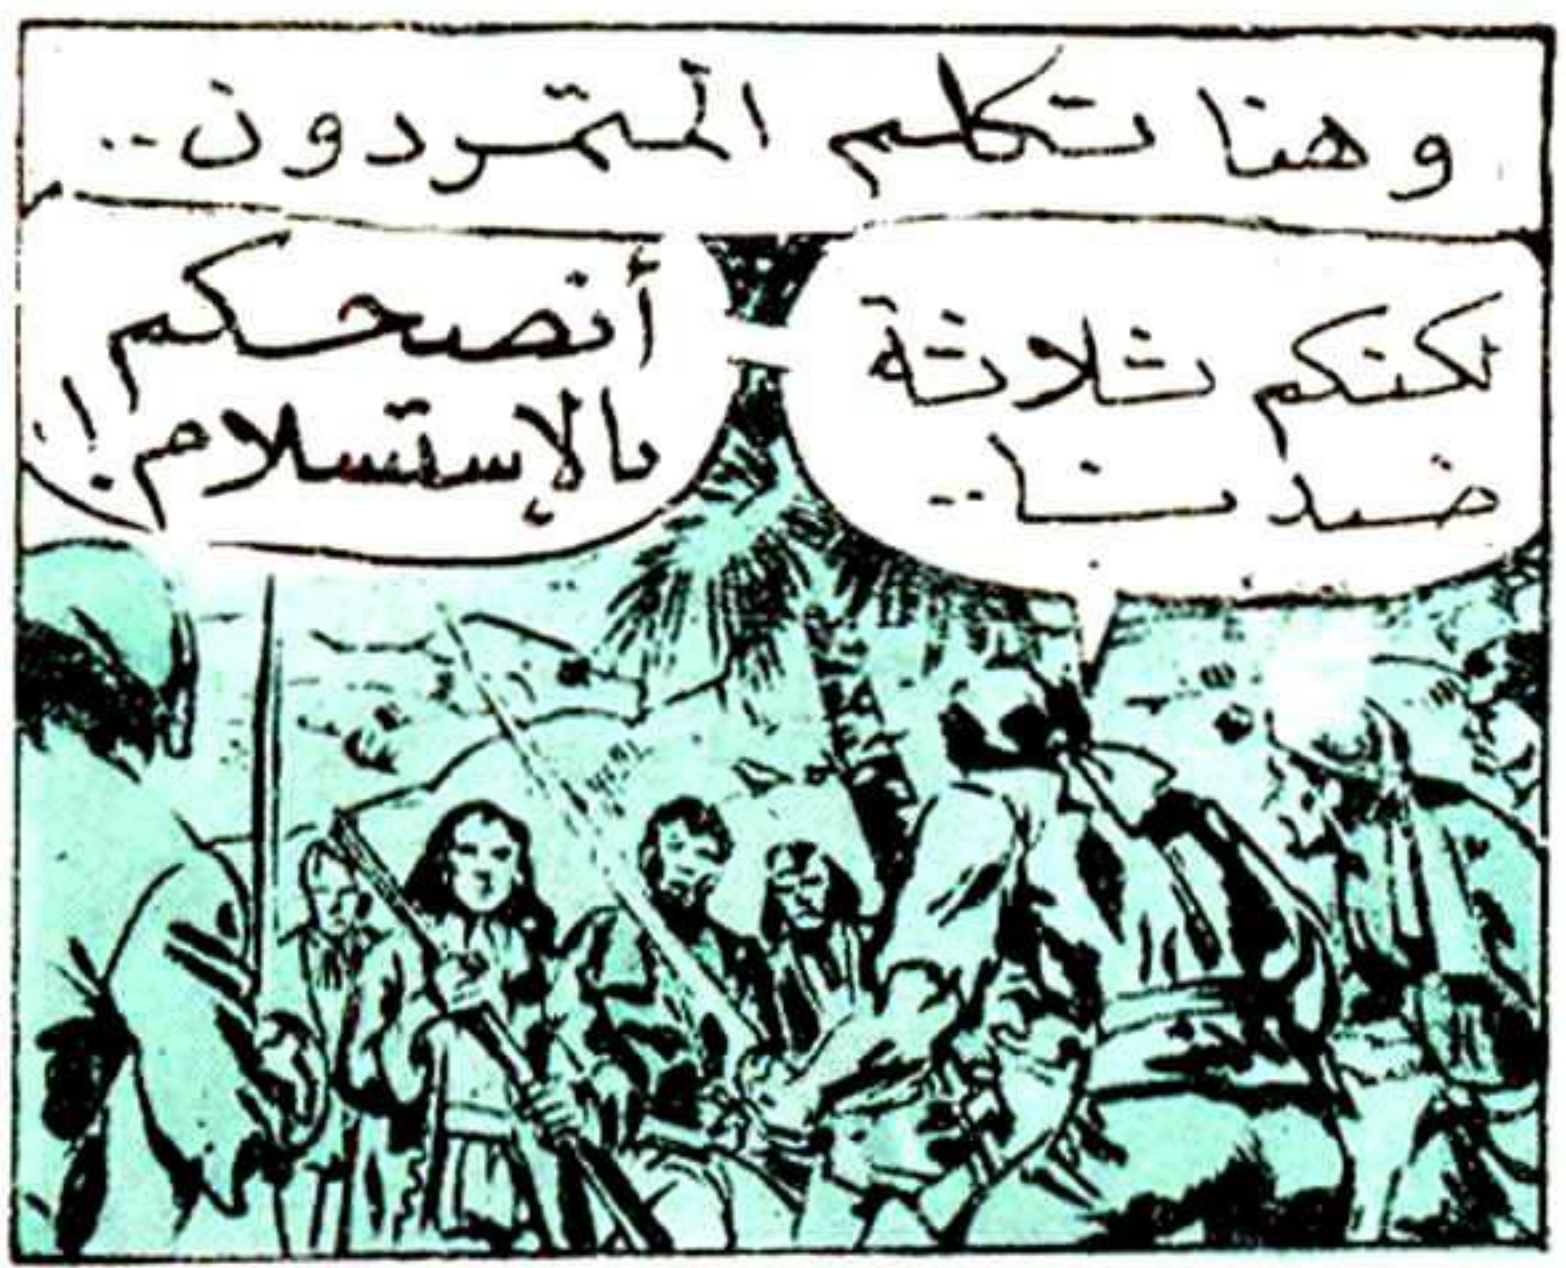 وهنا تكلم المتمردون..
لكنكم ثلاثة
ضدنا..
أنصحكم
بالإستسلام!!